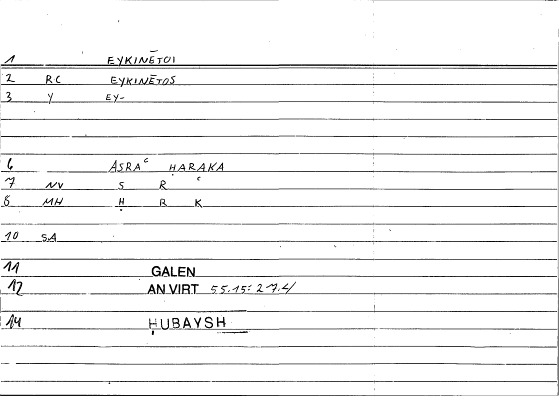 1 EYKINĒTOI
2 RC EYKINĒTOS
3 Y EY-
6 ASRAᶜ ḤARAKA
7 NV S R ᶜ
8 MH Ḥ R K
10 SA
11 GALEN
12 AN VIRT 55.15: 27.4/
14 ḤUBAYSH